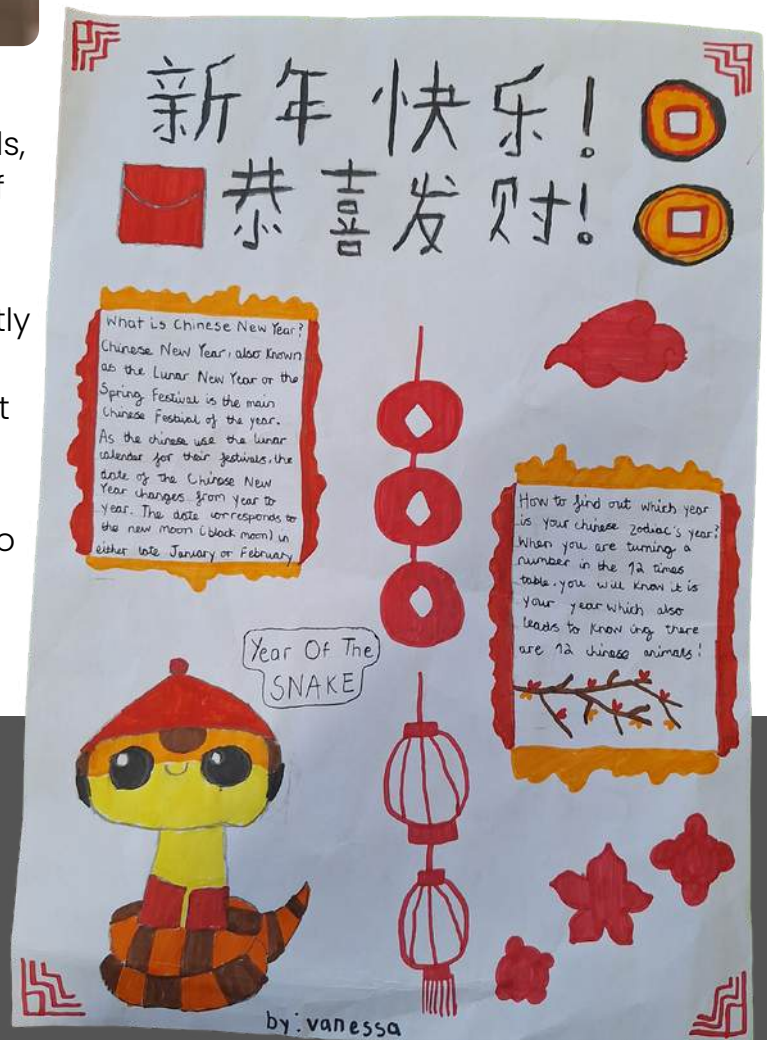 ls,
f
tly
t
o
新年快乐!
恭喜发财!
What is Chinese New Year?
Chinese New Year, also known
as the Lunar New Year or the
Spring Festival is the main
Chinese Festival of the year.
As the chinese use the lunar
calendar for their festivals, the
date of the Chinese New
Year changes from year to
year. The date corresponds to
the new moon (black moon) in
either late January or February
How to find out which year
is your chinese zodiac's year?
When you are turning a
number in the 12 times
table, you will know it is
your year which also
leads to know ing there
are 12 chinese animals!
Year Of The
SNAKE
by: vanessa